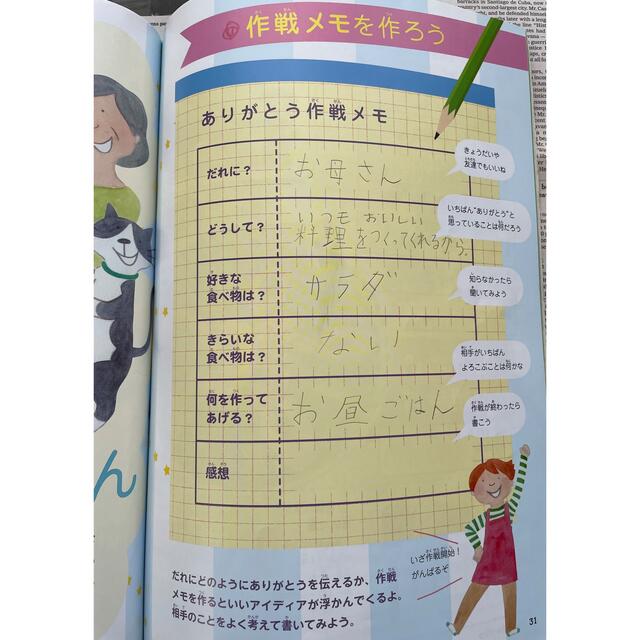 作戦メモを作ろう
ありがとう作戦メモ
だれに？
お母さん
きょうだいや
友達でもいいね
どうして？
いつも おいしい
料理をつくってくれるから。
いちばん“ありがとう”と
思っていることは何だろう
好きな
食べ物は？
サラダ
知らなかったら
聞いてみよう
きらいな
食べ物は？
ない
相手がいちばん
よろこぶことは何かな
何を作って
あげる？
お昼ごはん
作戦が終わったら
書こう
感想
ん
いざ作戦開始！
がんばるぞ
だれにどのようにありがとうを伝えるか、作戦
メモを作るといいアイディアが浮かんでくるよ。
相手のことをよく考えて書いてみよう。
31